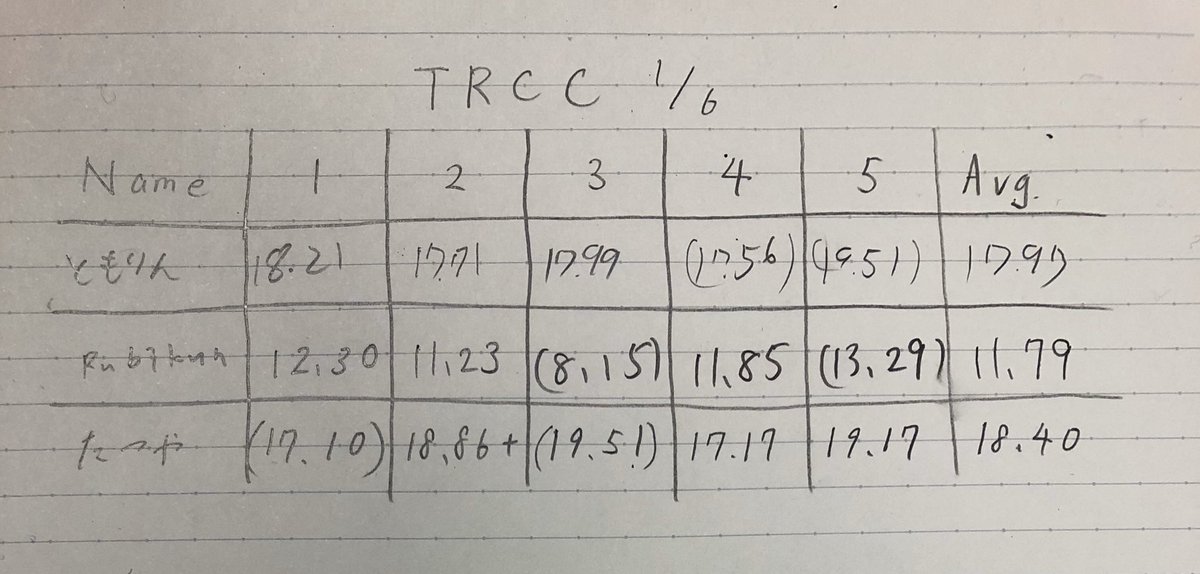 TRCC 1/6
Name 1 2 3 4 5 Avg.
ともりん 18.21 17.71 17.99 (17.56) (19.51) 17.97
12.30 11.23 (8.15) 11.85 (13.29) 11.79
たつや (17.10) 18.86+ (19.51) 17.17 19.17 18.40